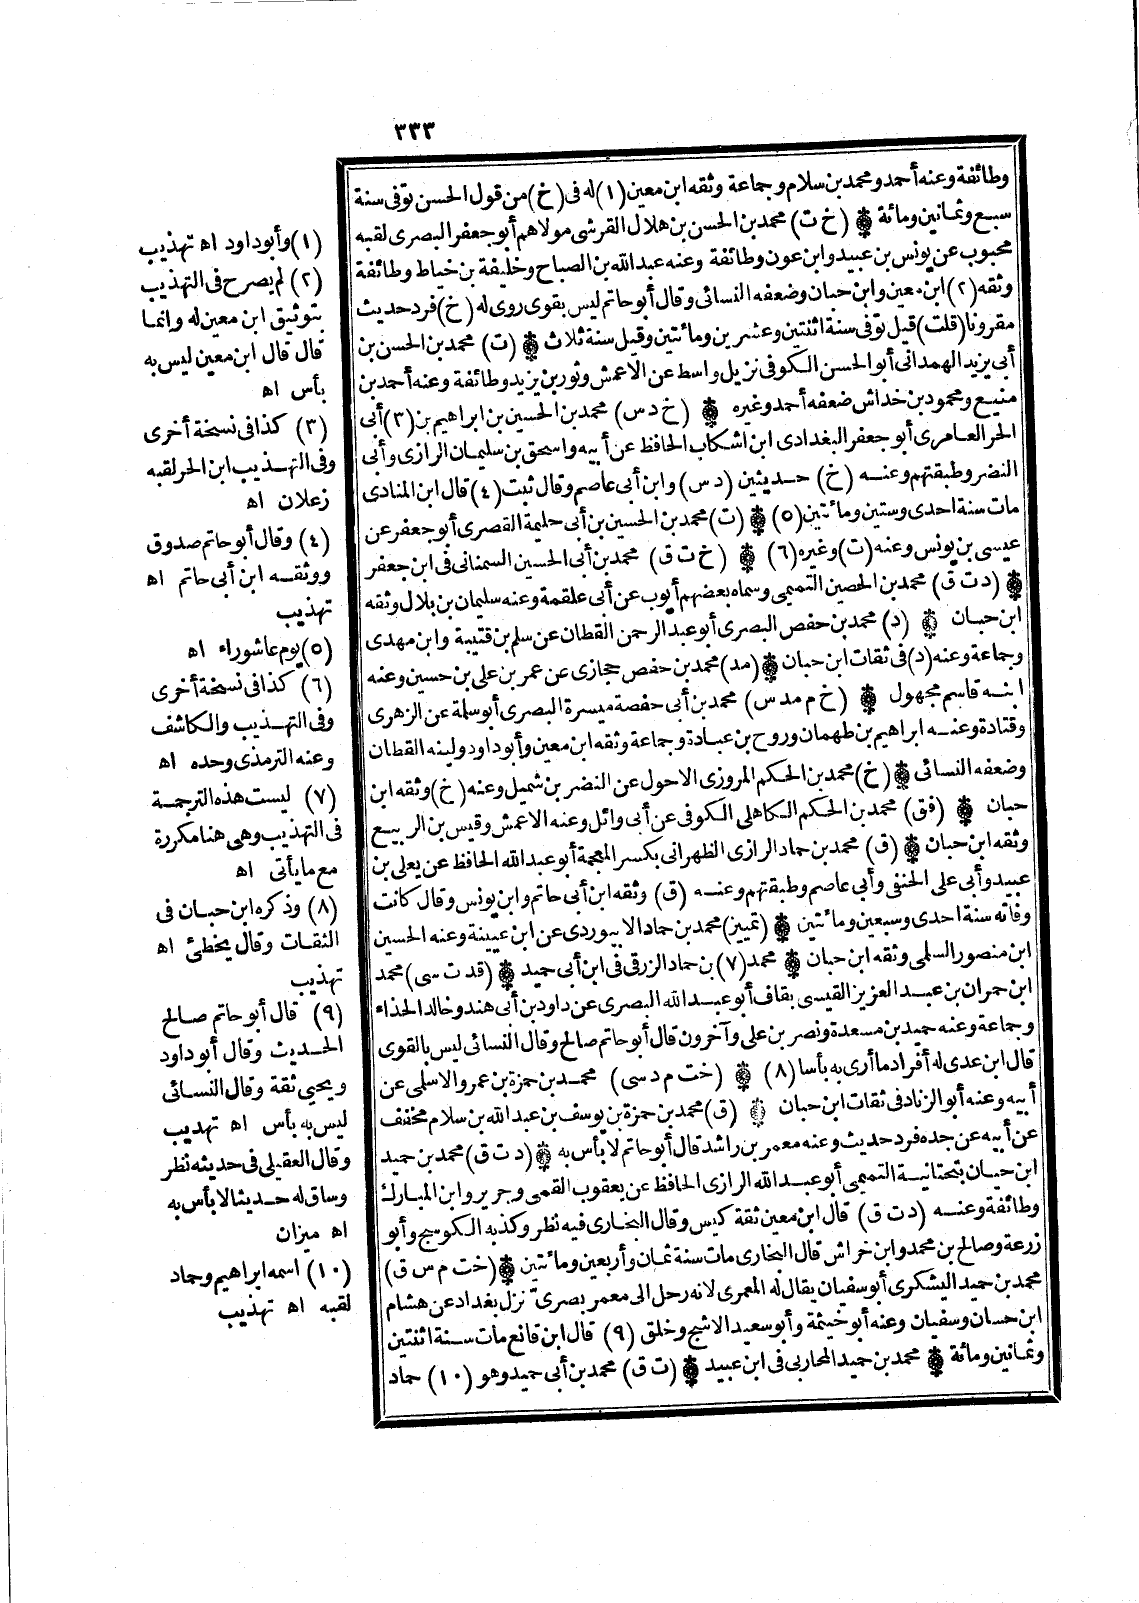 ٣٣٣
وطائفة وعنه أحمد ومحمد بن سلام وجماعة وثقه ابن معين (١) له فى (خ) من قول الحسن توفى سنة
سبع وثمانين ومائة ۞ (خ ت) محمد بن الحسن بن هلال القرشى مولاهم أبو جعفر البصرى لقبه
محبوب عن يونس بن عبيد وابن عون وطائفة وعنه عبد الله بن الصباح وخليفة بن خياط وطائفة
وثقه (٢) ابن معين وابن حبان وضعفه النسائى وقال أبو حاتم ليس بقوى روى له (خ) فرد حديث
مقرونا (قلت) قيل توفى سنة اثنتين وعشرين ومائتين وقيل سنة ثلاث ۞ (ت) محمد بن الحسن بن
أبى يزيد الهمدانى أبو الحسن الكوفى نزيل واسط عن الاعمش وثور بن يزيد وطائفة وعنه أحمد بن
منيع ومحمود بن خداش ضعفه أحمد وغيره ۞ (خ د س) محمد بن الحسين بن ابراهيم بن (٣) أبى
الحر العامرى أبو جعفر البغدادى ابن اشكاب الحافظ عن أبيه واسحق بن سليمان الرازى وأبى
النضر وطبقتهم وعنه (خ) حديثين (د س) وابن أبى عاصم وقال ثبت (٤) قال ابن المنادى
مات سنة احدى وستين ومائتين (٥) ۞ (ت) محمد بن الحسين بن أبى حليمة القصرى أبو جعفر عن
عيسى بن يونس وعنه (ت) وغيره (٦) ۞ (خ ت ق) محمد بن أبى الحسين السمنانى فى ابن جعفر
۞ (د ت ق) محمد بن الحصين التميمى وسماه بعضهم أيوب عن أبى علقمة وعنه سليمان بن بلال وثقه
ابن حبان ۞ (د) محمد بن حفص البصرى أبو عبد الرحمن القطان عن سلم بن قتيبة وابن مهدى
وجماعة وعنه (د) فى ثقات ابن حبان ۞ (مد) محمد بن حفص حجازى عن عمر بن على بن حسين وعنه
ابنه قاسم مجهول ۞ (خ م مد س) محمد بن أبى حفصة ميسرة البصرى أبو سلمة عن الزهرى
وقتادة وعنه ابراهيم بن طهمان وروح بن عبادة وجماعة وثقه ابن معين وأبو داود ولينه القطان
وضعفه النسائى ۞ (خ) محمد بن الحكم المروزى الاحول عن النضر بن شميل وعنه (خ) وثقه ابن
حبان ۞ (فق) محمد بن الحكم الكاهلى الكوفى عن أبى وائل وعنه الاعمش وقيس بن الربيع
وثقه ابن حبان ۞ (ق) محمد بن حماد الرازى الظهرانى بكسر المعجمة أبو عبد الله الحافظ عن يعلى بن
عبيد وأبى على الحنفى وأبى عاصم وطبقتهم وعنه (ق) وثقه ابن أبى حاتم وابن يونس وقال كانت
وفاته سنة احدى وسبعين ومائتين ۞ (تمييز) محمد بن حماد الابيوردى عن ابن عيينة وعنه الحسين
ابن منصور السلمى وثقه ابن حبان ۞ محمد (٧) بن حماد الزرقى فى ابن أبى حميد ۞ (قد ت سى) محمد
ابن حمران بن عبد العزيز القيسى بقاف أبو عبد الله البصرى عن داود بن أبى هند وخالد الحذاء
وجماعة وعنه حميد بن مسعدة ونصر بن على وآخرون قال أبو حاتم صالح وقال النسائى ليس بالقوى
قال ابن عدى له أفراد ما أرى به بأسا (٨) ۞ (خت م د سى) محمد بن حمزة بن عمرو الاسلمى عن
أبيه وعنه أبو الزناد فى ثقات ابن حبان ۞ (ق) محمد بن حمزة بن يوسف بن عبد الله بن سلام مخفف
عن أبيه عن جده فرد حديث وعنه معمر بن راشد قال أبو حاتم لا بأس به ۞ (د ت ق) محمد بن حميد
ابن حبان بتحتانية التميمى أبو عبد الله الرازى الحافظ عن يعقوب القمى وجرير وابن المبارك
وطائفة وعنه (د ت ق) قال ابن معين ثقة كيس وقال البخارى فيه نظر وكذبه الكوسج وأبو
زرعة وصالح بن محمد وابن خراش قال البخارى مات سنة ثمان وأربعين ومائتين ۞ (خت م س ق)
محمد بن حميد اليشكرى أبو سفيان يقال له المعمرى لانه رحل الى معمر بصرى نزل بغداد عن هشام
ابن حسان وسفيان وعنه أبو خيثمة وأبو سعيد الاشج وخلق (٩) قال ابن قانع مات سنة اثنتين
وثمانين ومائة ۞ محمد بن حميد المحاربى فى ابن عبيد ۞ (ت ق) محمد بن أبى حميد وهو (١٠) حماد
(١) وأبو داود اه تهذيب
(٢) لم يصرح فى التهذيب
بتوثيق ابن معين له وانما
قال قال ابن معين ليس به
بأس اه
(٣) كذا فى نسخة أخرى
وفى التهذيب ابن الحر لقبه
زعلان اه
(٤) وقال أبو حاتم صدوق
ووثقه ابن أبى حاتم اه
تهذيب
(٥) يوم عاشوراء اه
(٦) كذا فى نسخة أخرى
وفى التهذيب والكاشف
وعنه الترمذى وحده اه
(٧) ليست هذه الترجمة
فى التهذيب وهى هنا مكررة
مع ما يأتى اه
(٨) وذكره ابن حبان فى
الثقات وقال يخطئ اه
تهذيب
(٩) قال أبو حاتم صالح
الحديث وقال أبو داود
ويحيى ثقة وقال النسائى
ليس به بأس اه تهذيب
وقال العقيلى فى حديثه نظر
وساق له حديثا لا بأس به
اه ميزان
(١٠) اسمه ابراهيم وحماد
لقبه اه تهذيب